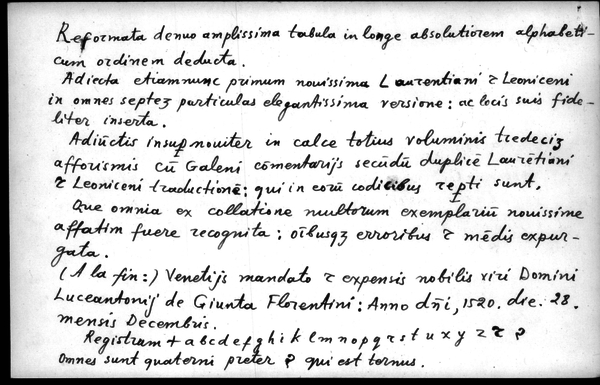 Reformata denuo amplissima tabula in longe absolutiorem alphabeti-
cum ordinem deducta.
Adiecta etiamnunc primum nouissima Laurentiani ⁊ Leoniceni
in omnes septeʒ particulas elegantissima versione: ac locis suis fide-
liter inserta.
Adiūctis insup̱ nouiter in calce totius voluminis tredeciʒ
afforismis cū Galeni cōmentarijs secūdū duplicē Laurētiani
⁊ Leoniceni traductionē; qui in eorū codicibus rep̱ti sunt.
Que omnia ex collatione multorum exemplariū nouissime
affatim fuere recognita: oībusqʒ erroribus ⁊ mēdis expur-
gata.
(A la fin:) Venetijs mandato ⁊ expensis nobilis viri Domini
Luceantonij de Giunta Florentini: Anno dn̄i, 1520. die. 28.
mensis Decembris.
Registrum + a b c d e f g h i k l m n o p q r s t u x y z ⁊ ꝯ
Omnes sunt quaterni preter ꝯ qui est ternus.